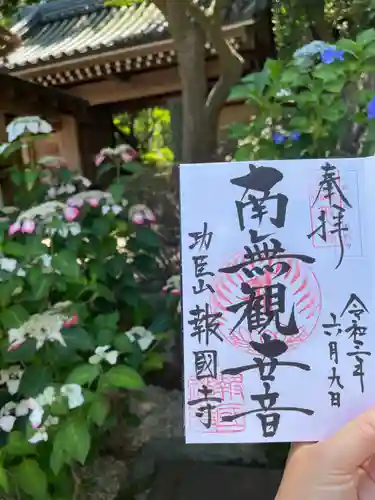 奉拝
令和二年
六月九日
南無観世音
功臣山
報國寺